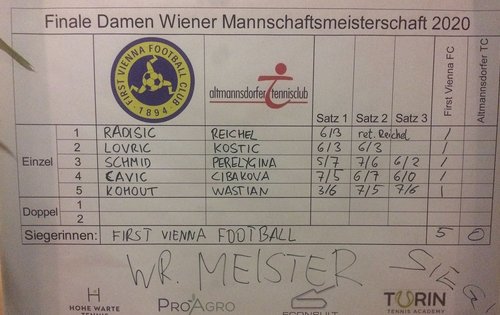 Finale Damen Wiener Mannschaftsmeisterschaft 2020
FIRST VIENNA FOOTBALL CLUB 1894
altmannsdorfer tennisclub
Satz 1 Satz 2 Satz 3 First Vienna FC Altmannsdorfer TC
Einzel
1 RADISIC REICHEL 6/3 ret. Reichel /
2 LOVRIC KOSTIC 6/3 6/3 /
3 SCHMID PERELYGINA 5/7 7/6 6/2 /
4 CAVIC CIBAKOVA 7/5 6/7 6/0 /
5 KOHOUT WASTIAN 3/6 7/5 7/6 /
Doppel
1
2
Siegerinnen: FIRST VIENNA FOOTBALL 5 0
WR. MEISTER SIEG!
HOHE WARTE TENNIS
PROAGRO
ECONSULT
TURIN TENNIS ACADEMY